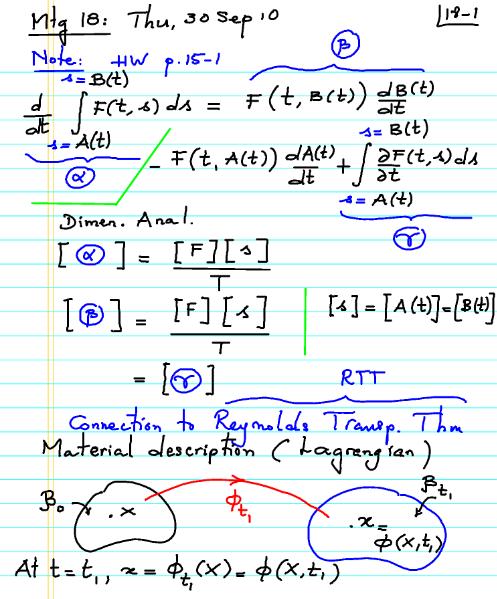 Mtg 18: Thu, 30 Sep 10
18-1
Note: HW p.15-1
β
d/dt ∫_{s=A(t)}^{s=B(t)} F(t,s) ds = F(t, B(t)) dB(t)/dt
α
- F(t, A(t)) dA(t)/dt + ∫_{s=A(t)}^{s=B(t)} ∂F(t,s)/∂t ds
γ
Dimen. Anal.
[α] = [F][s]/T
[β] = [F][s]/T
[s] = [A(t)] = [B(t)]
= [γ]
RTT
Connection to Reynolds Transp. Thm
Material description (Lagrangian)
B₀
. X
ϕ_{t₁}
B_{t₁}
. x =
ϕ(X,t₁)
At t = t₁, x = ϕ_{t₁}(X) = ϕ(X,t₁)